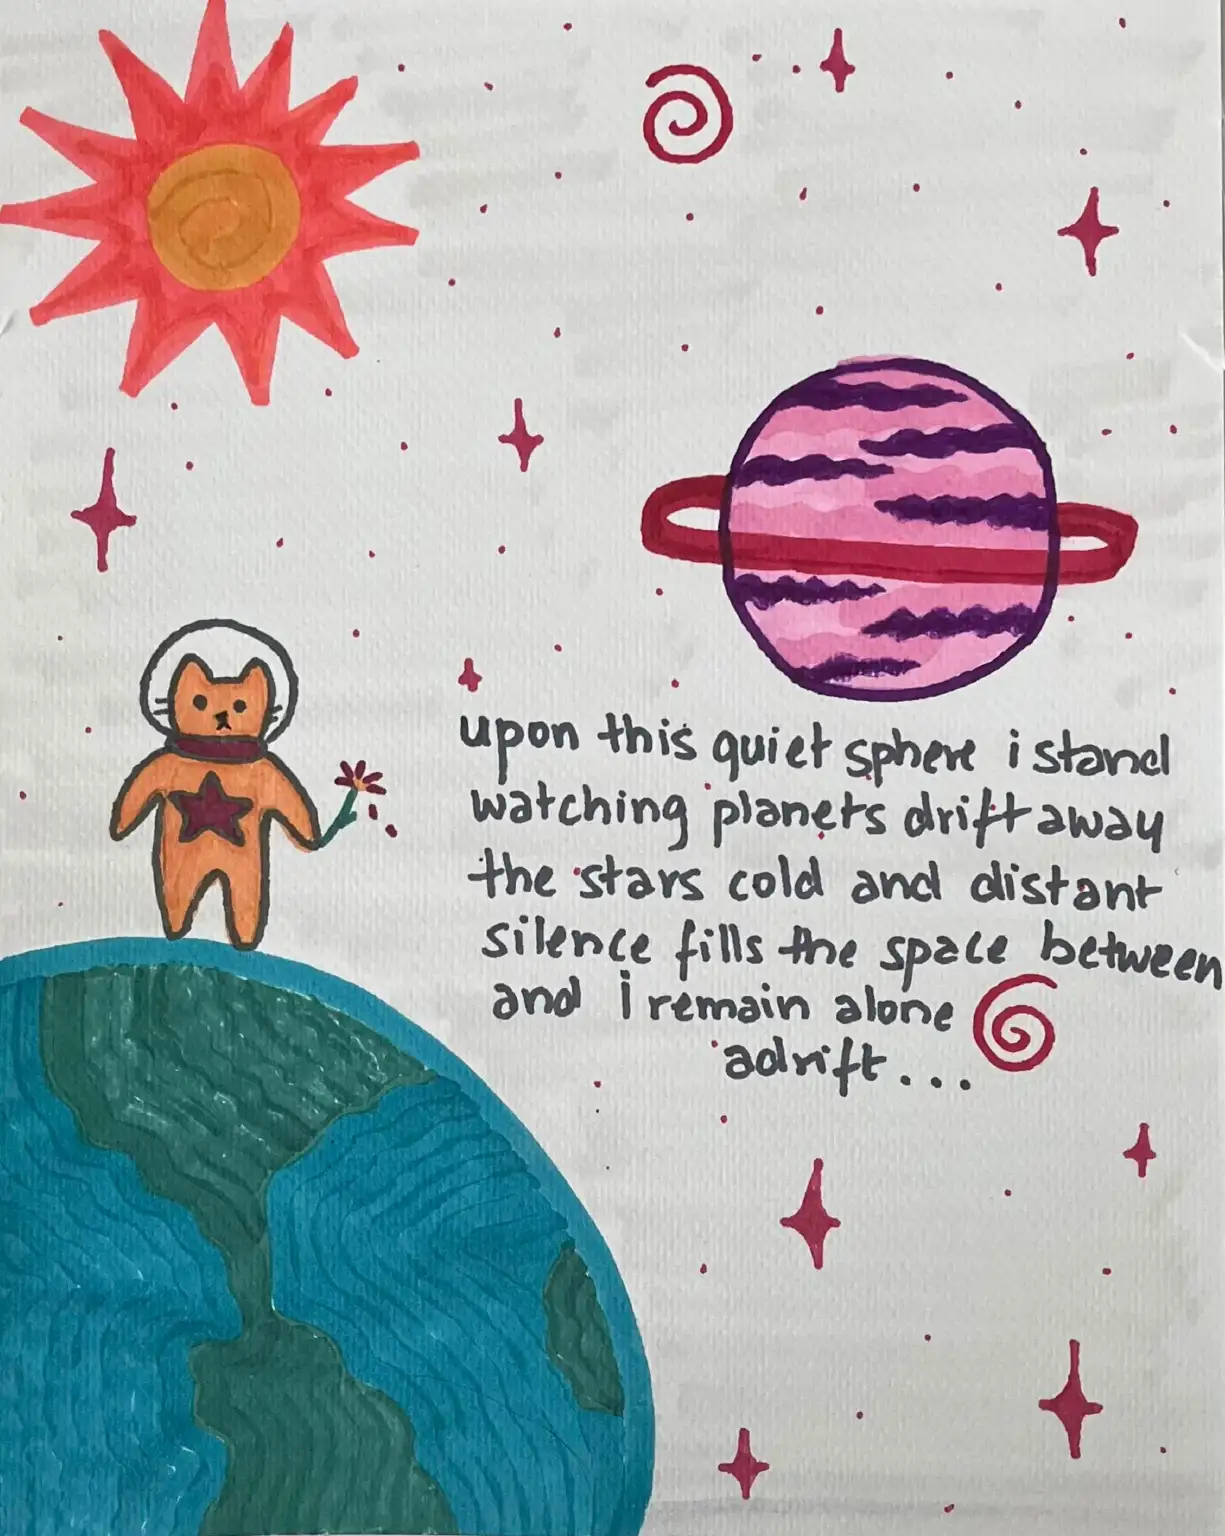 upon this quiet sphere i stand
watching planets drift away
the stars cold and distant
silence fills the space between
and i remain alone
adrift...